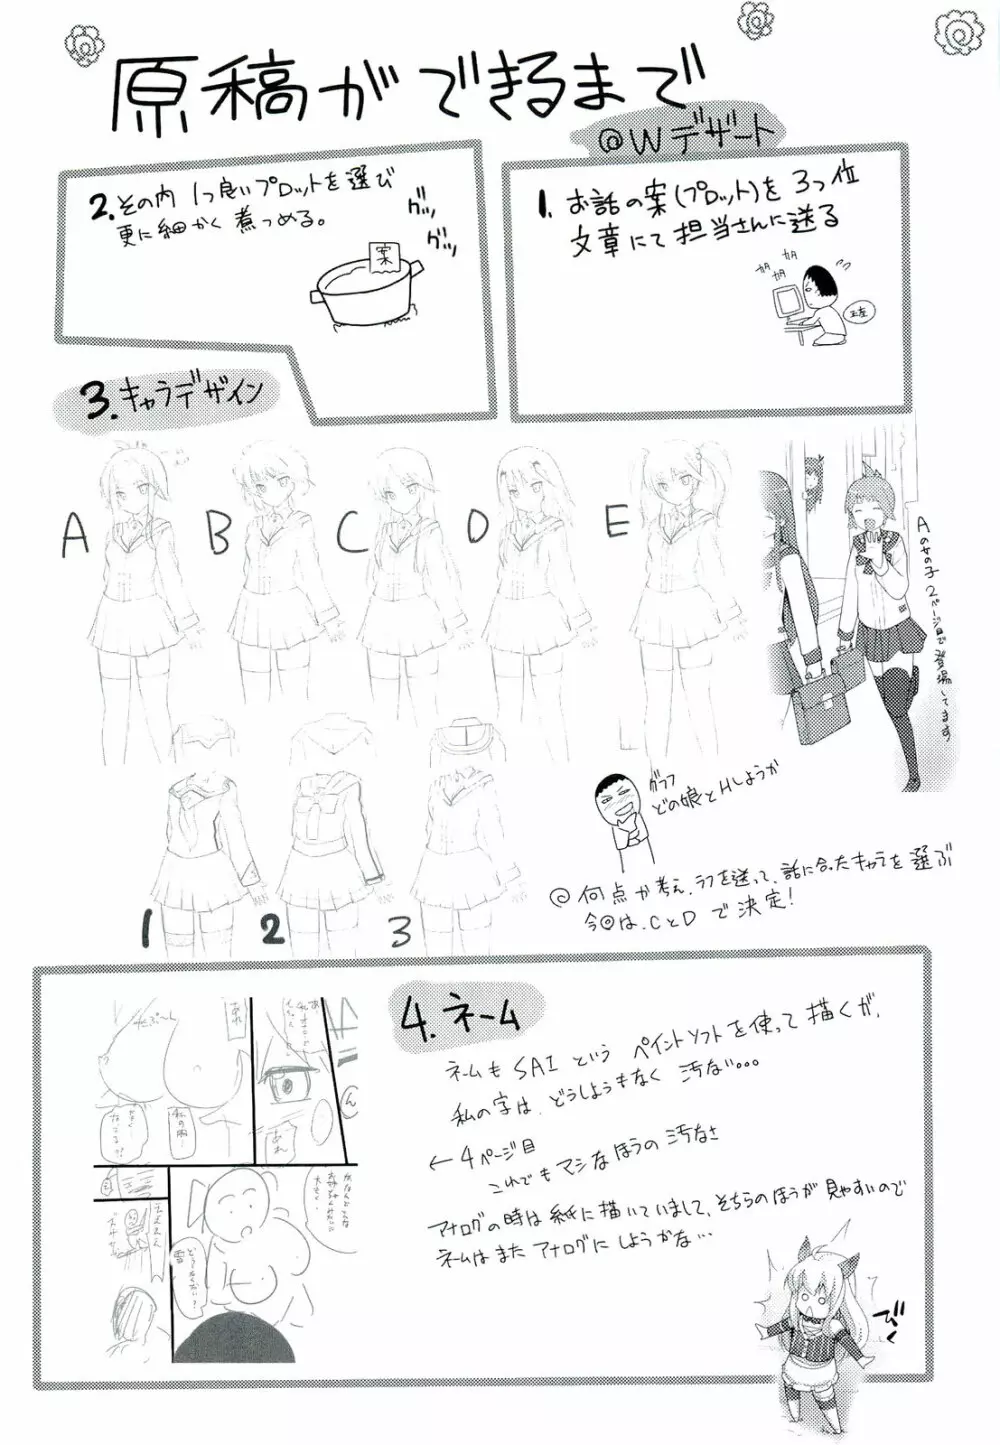 原稿ができるまで
@Wデザート
1. お話の案(プロット)を3つ位
文章にて担当さんに送る
カタ
カタ
カタ
2. その内1つ良いプロットを選び
更に細かく煮つめる。
案
グッ
グッ
3. キャラデザイン
A
B
C
D
E
Aの女の子2ページ目で登場してます
1
2
3
グフフ
どの娘とHしようか
◎何点か考え、ラフを送って、話に合ったキャラを選ぶ
今回は、CとDで決定!
4. ネーム
ネームもSAIというペイントソフトを使って描くが、
私の字は、どうしようもなく汚ない…
←4ページ目
これでもマシなほうの汚なさ
アナログの時は紙に描いていまして、そちらのほうが見やすいので
ネームはまたアナログにしようかな…
びくっ
あれ
たぷーん
あれ